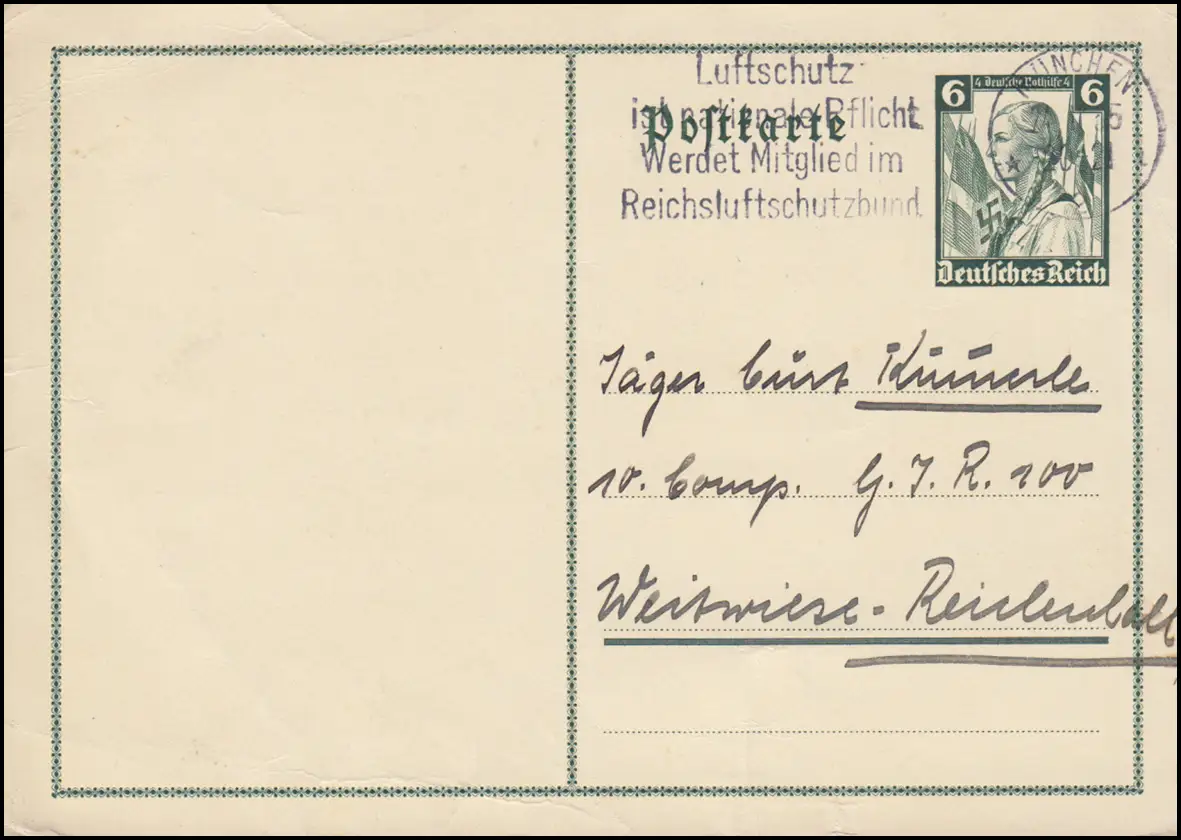 Luftschutz
ist nationale Pflicht
Werdet Mitglied im
Reichsluftschutzbund
Postkarte
MÜNCHEN
6 4 Deutsche Nothilfe 4 6
Deutsches Reich
Jäger Curt
10. Comp. G. J. R. 100
Reichenhall